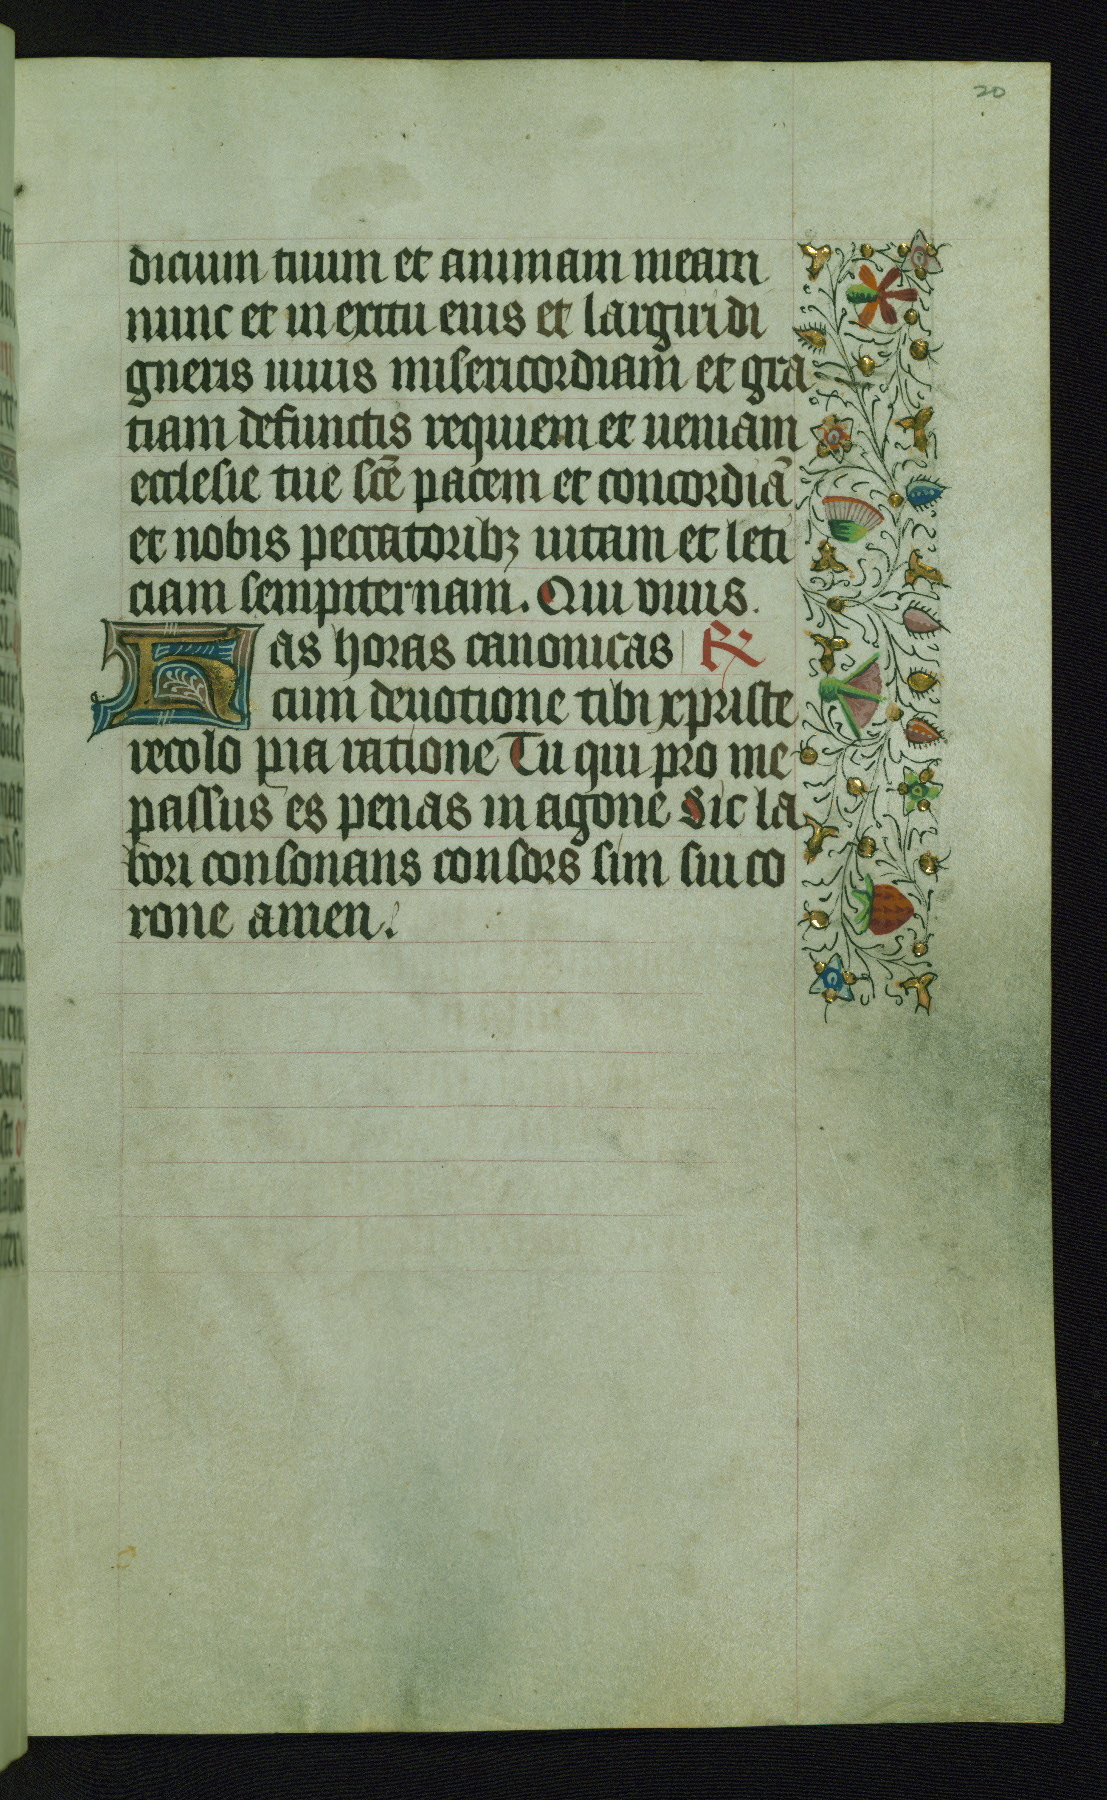 20
dicium tuum et animam meam
nunc et in exitu eius et largiri di
gneris uiuis misericordiam et gra
tiam defunctis requiem et ueniam
ecclesie tue sc̄e pacem et concordiā
et nobis peccatoribꝫ uitam et leti
ciam sempiternam. Qui viuis.
Has horas canonicas ℟
cum deuotione tibi xpriste
recolo pia ratione Tu qui pro me
passus es penas in agone Sic la
bori consonans consors sim sui co
rone amen.